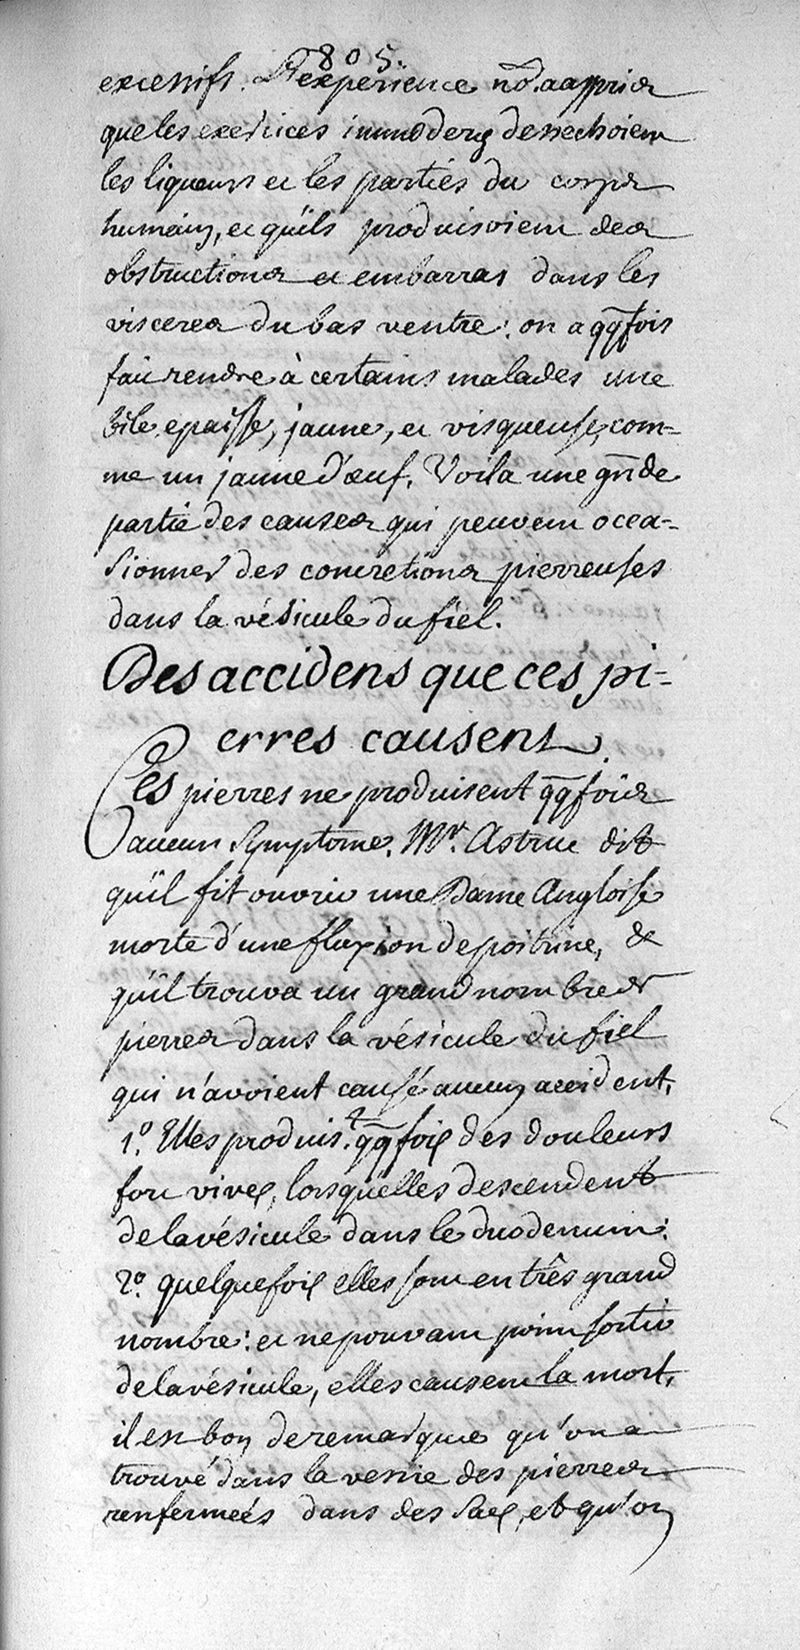 805.
excessifs. L'experience no.s a appris
que les exercices immoderés dessechoient
les liqueurs et les parties du corps
humain, et qu'ils produisoient des
obstructions et embarras dans les
visceres du bas ventre: on a qqfois
fait rendre à certains malades une
bile epaisse, jaune, et visqueuse, com=
me un jaune d'œuf. Voila une gñde
partie des causes qui peuvent occa=
sionner des concretions pierreuses
dans la vésicule du fiel.
Des accidens que ces pi=
erres causent.
Ces pierres ne produisent qqfois
aucun symptome. Mr. Astruc dit
qu'il fit ouvrir une Dame Angloise
morte d'une fluxion de poitrine, &
qu'il trouva un grand nombre de
pierres dans la vésicule du fiel
qui n'avoient causé aucun accident.
1.º Elles produis.t qqfois des douleurs
fort vives, lorsquelles descendent
de la vésicule dans le duodenum:
2.º quelquefois elles sont en três grand
nombre: et ne pouvant point sortir
de la vésicule, elles causent la mort.
il est bon de remarquer qu'on a
trouvé dans la vessie des pierres
renfermeés dans des sacs, et qu'on